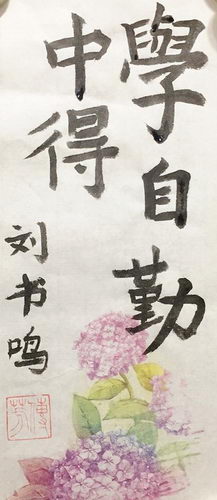 學自勤
中得
刘书鸣